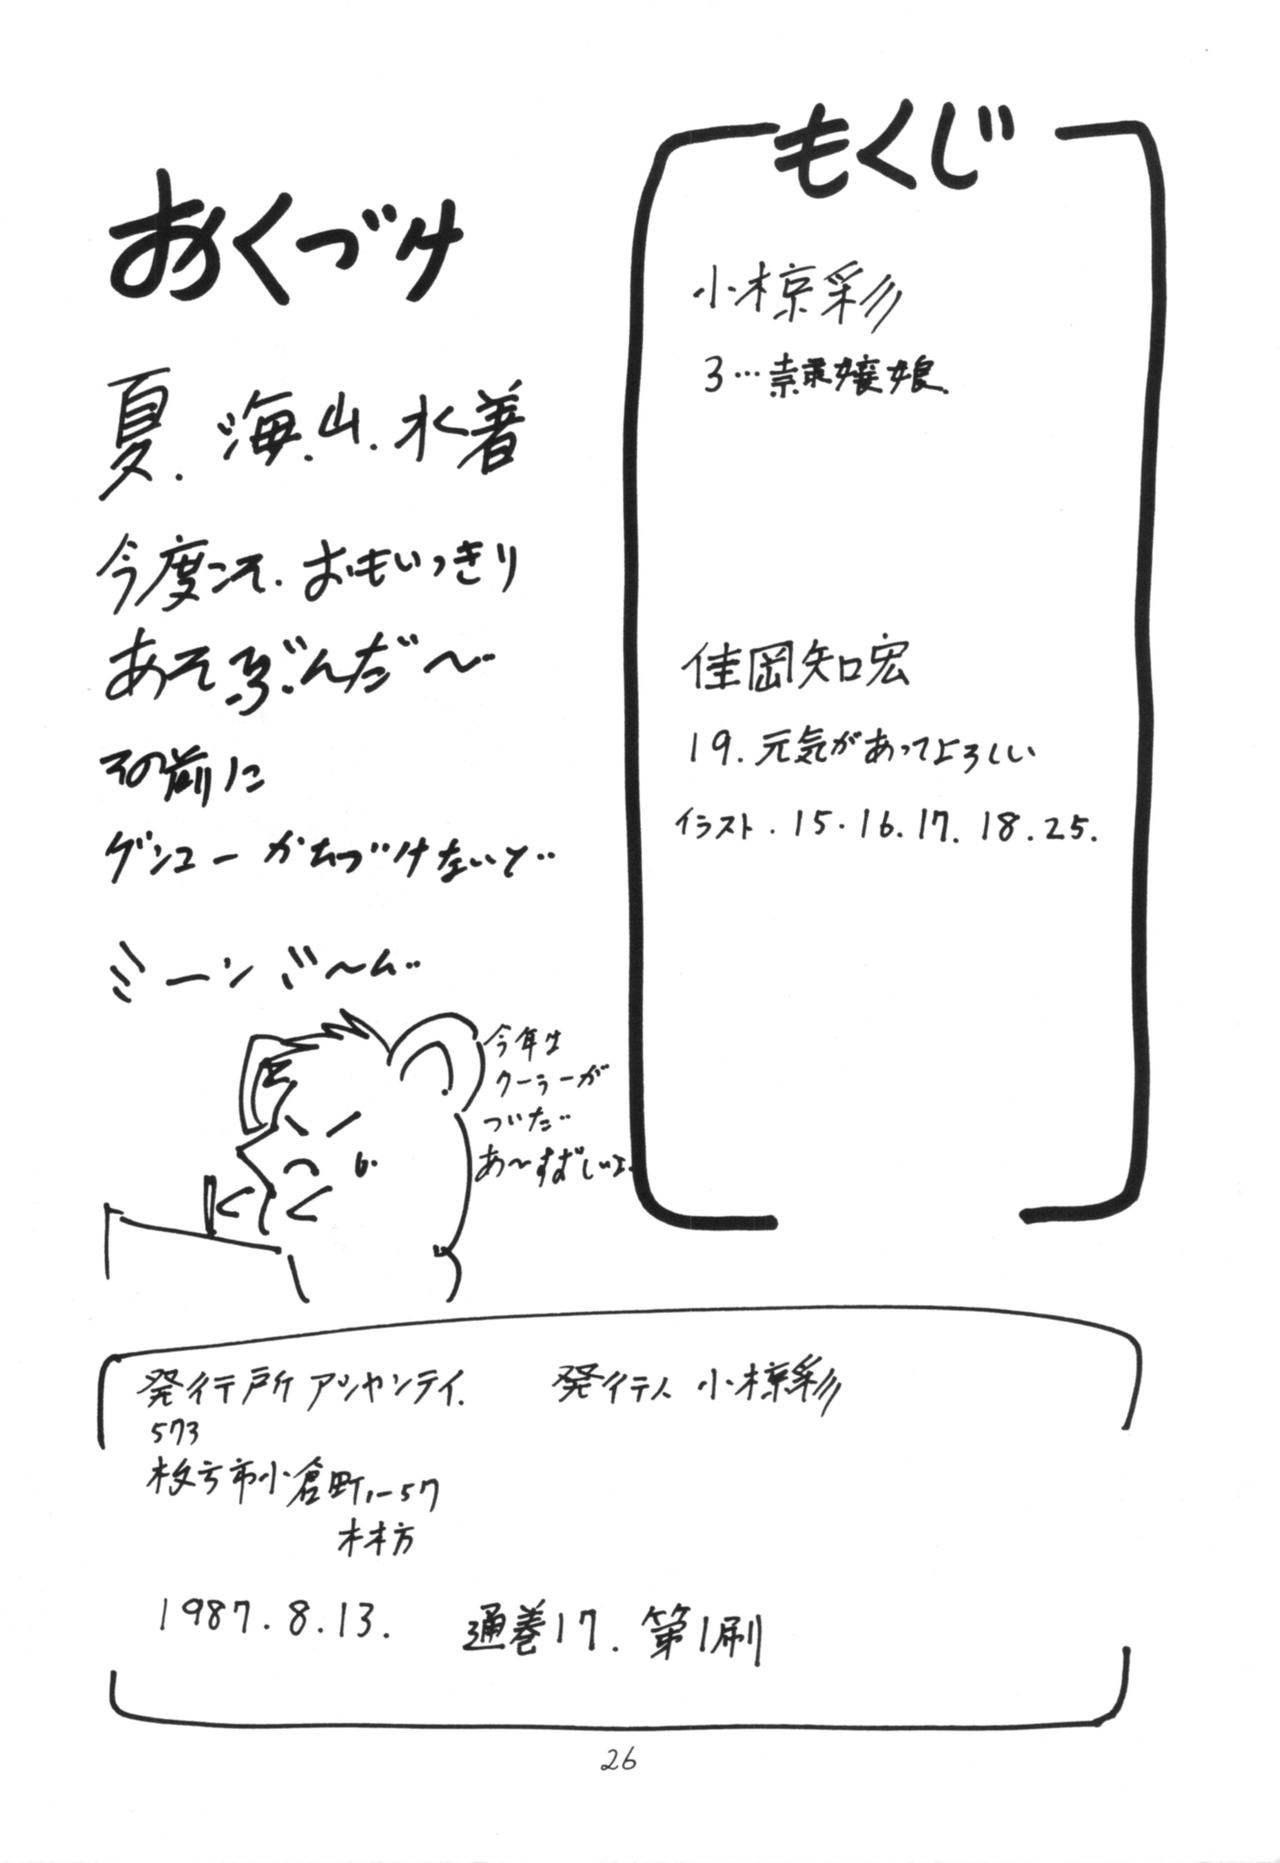 もくじ
小椋彩
3…素裸嬢娘.
佳岡知宏
19.元気があってよろしい
イラスト.15.16.17.18.25.
おくづけ
夏.海.山.水着
今度こそ.おもいっきり
あそぶんだ〜
その前に
ゲンコーかたづけないと‥
ミーンミ〜ん‥
今年は
クーラーが
ついた‥
あ〜すずしいよ.
発行所 アシャンティ.
発行人 小椋彩
573
枚方市小倉町1-57
林方
1987.8.13.
通巻17.第1刷
26